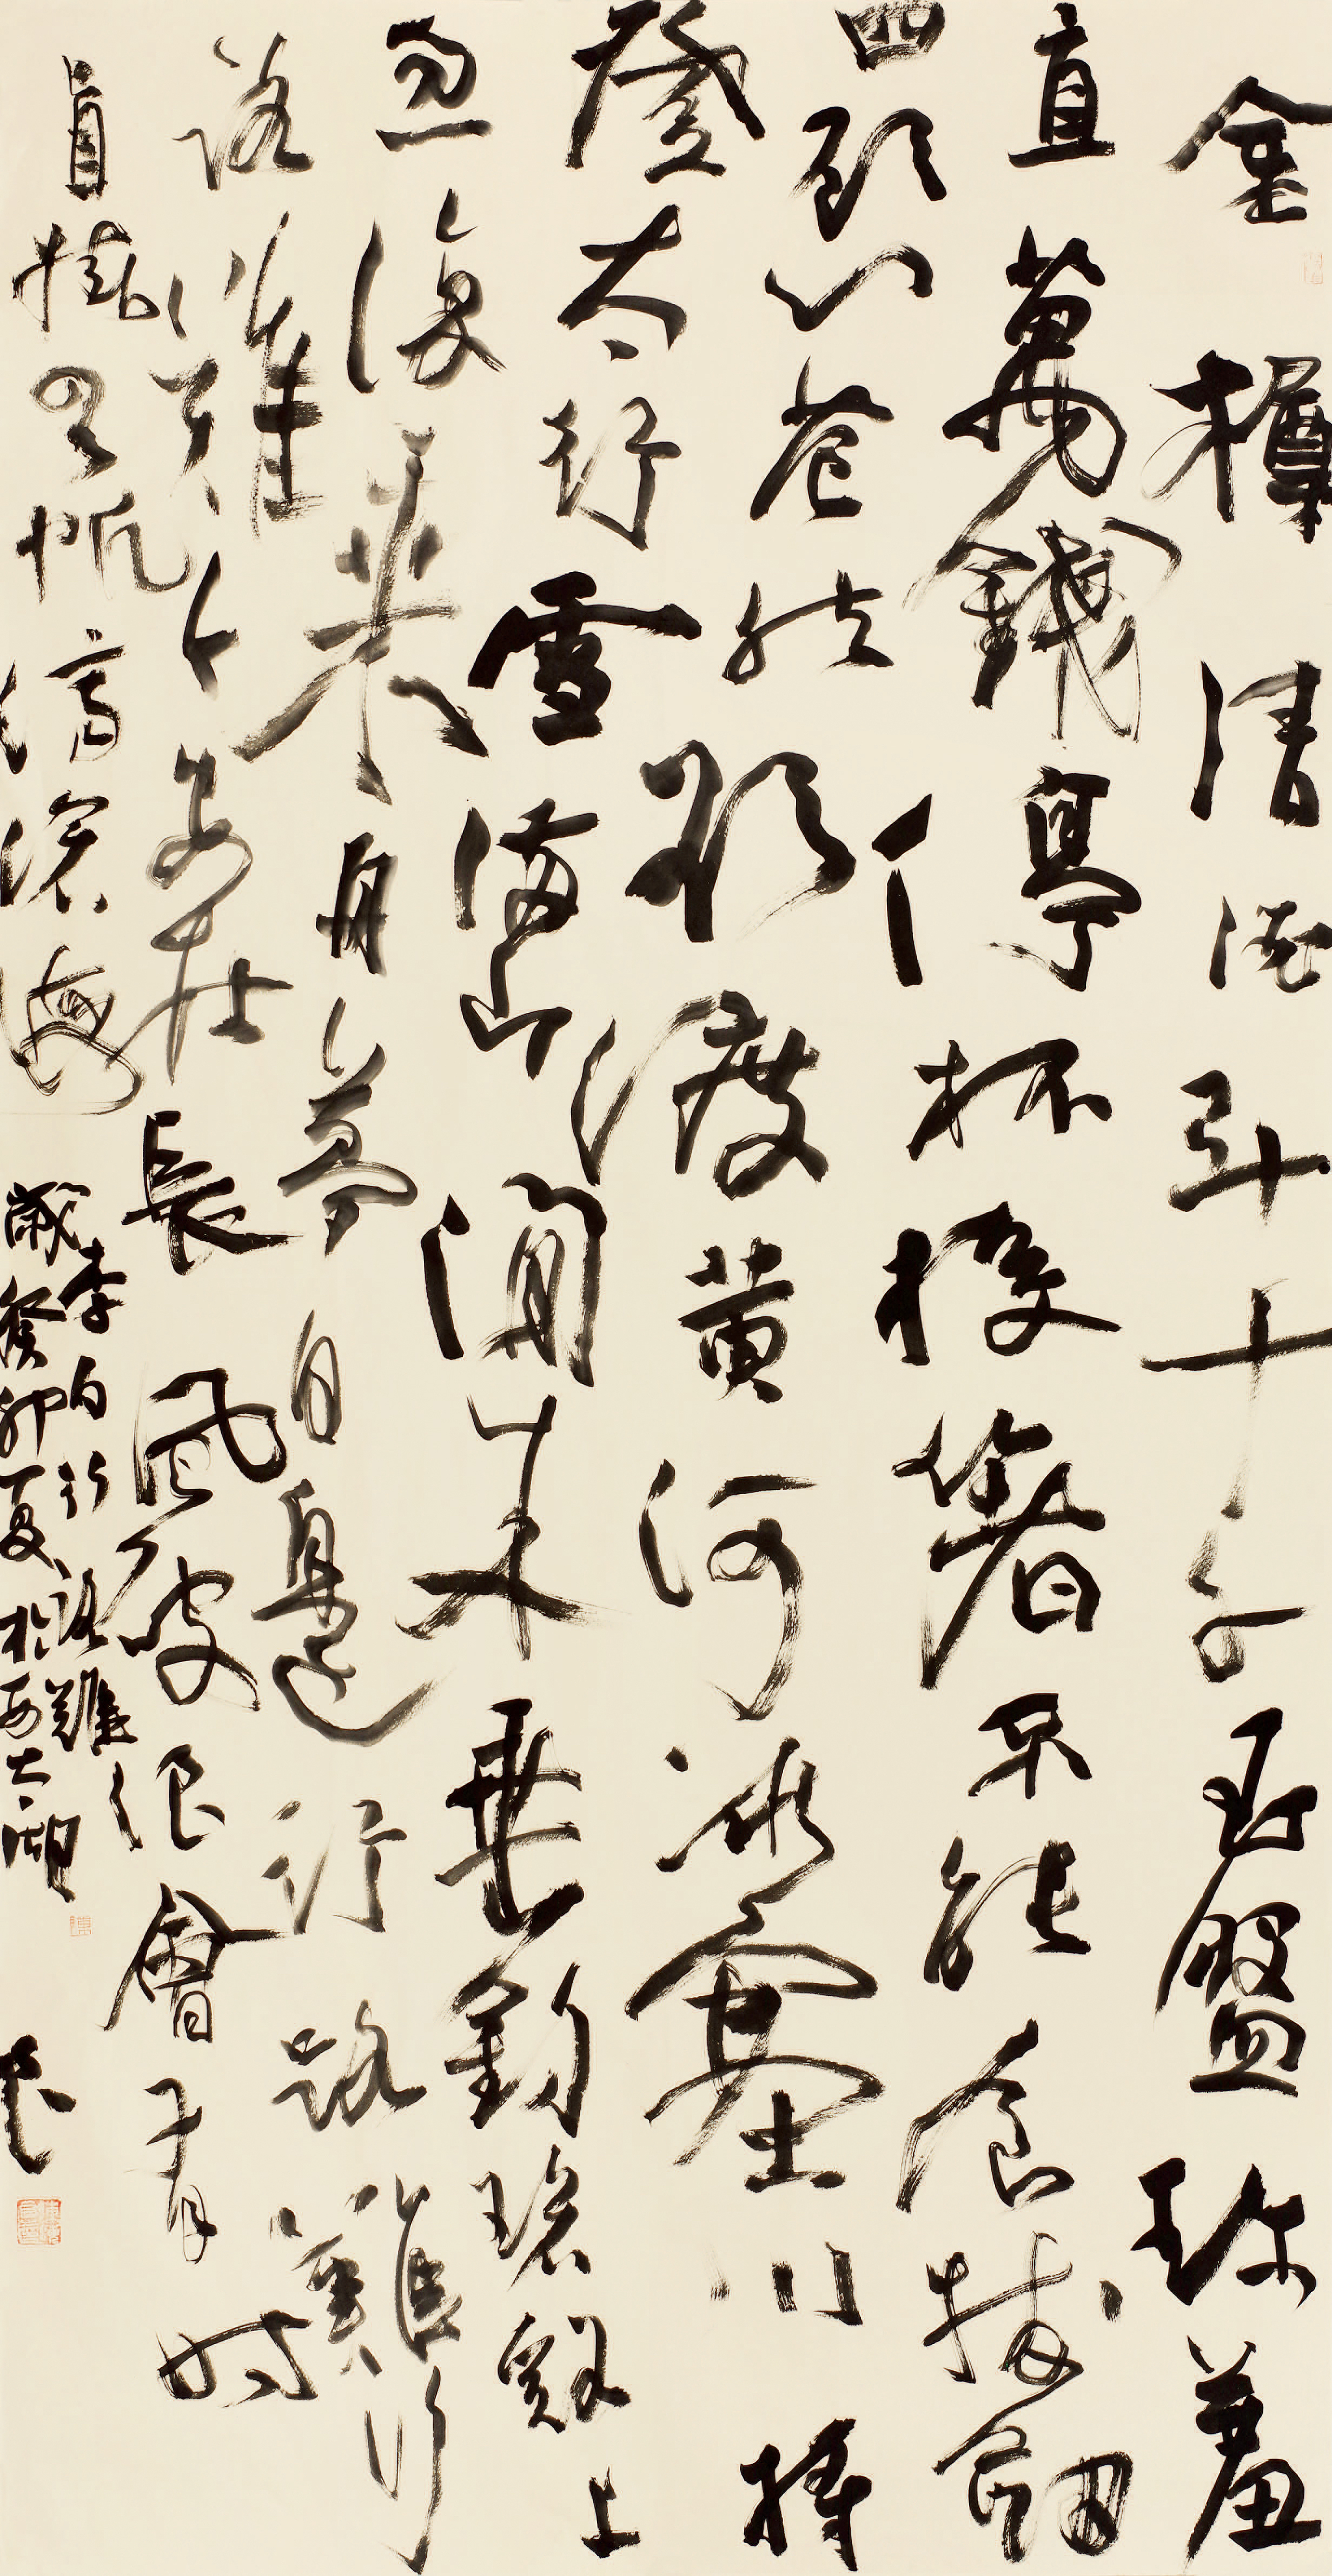 金樽清酒斗十千玉盤珍羞
直萬錢停杯投箸不能食拔劍
四顧心茫然欲渡黃河冰塞川將
登太行雪滿山閒來垂釣碧谿上
忽復乘舟夢日邊行路難行
路難多歧路今安在長風破浪會有時
直掛雲帆濟滄海
李白行路難
歲癸卯夏於西太湖